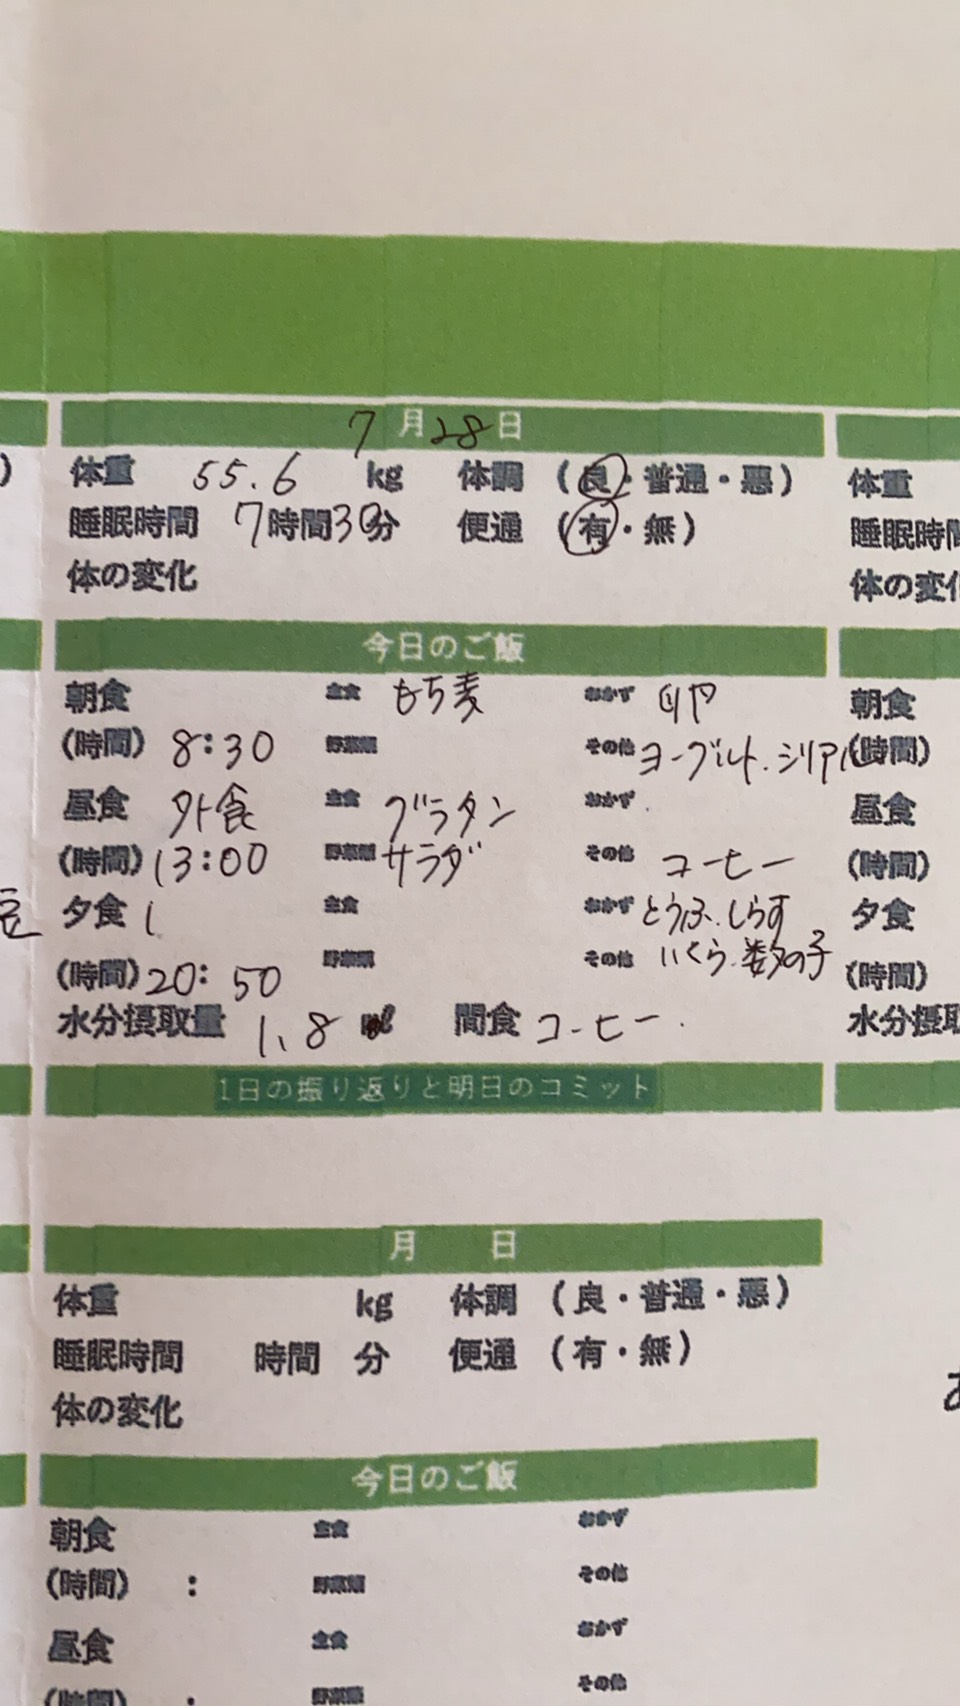 7月28日
体重 55.6 kg 体調 (良・普通・悪)
睡眠時間 7時間30分 便通 (有・無)
体の変化
今日のご飯
朝食 主食 もち麦 おかず
(時間) 8:30 野菜類 その他 ヨーグルト.シリアル
昼食 外食 主食 グラタン おかず
(時間) 13:00 野菜類 サラダ その他 コーヒー
夕食 主食 おかず とうふ.しらす
(時間) 20:50 野菜類 その他 いくら.数の子
水分摂取量 1.8 l 間食 コーヒー.
1日の振り返りと明日のコミット
月 日
体重 kg 体調 (良・普通・悪)
睡眠時間 時間 分 便通 (有・無)
体の変化
今日のご飯
朝食 主食 おかず
(時間) : 野菜類 その他
昼食 主食 おかず
(時間) : 野菜類 その他
体重
睡眠時間
体の変化
朝食
(時間)
昼食
(時間)
夕食
(時間)
水分摂取